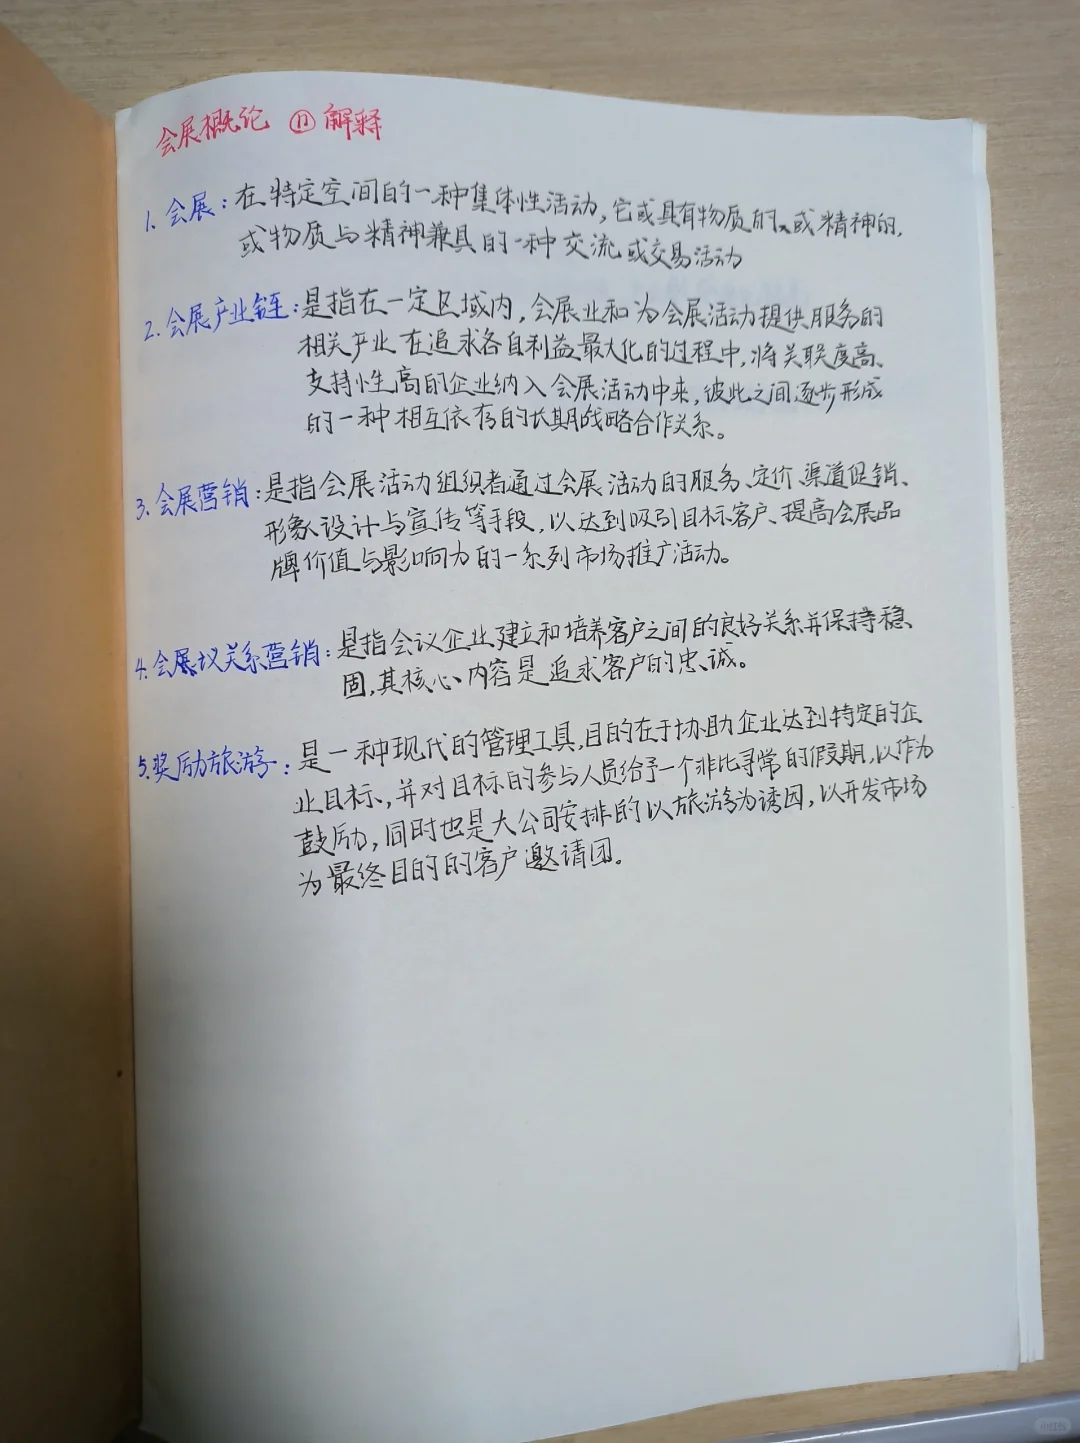 会展概论 ⑪ 解释
1. 会展：在特定空间的一种集体性活动，它或具有物质的、或精神的，
或物质与精神兼具的一种交流或交易活动
2. 会展产业链：是指在一定区域内，会展业和为会展活动提供服务的
相关产业在追求各自利益最大化的过程中，将关联度高、
支持性高的企业纳入会展活动中来，彼此之间逐步形成
的一种相互依存的长期战略合作关系。
3. 会展营销：是指会展活动组织者通过会展活动的服务、定价、渠道促销、
形象设计与宣传等手段，以达到吸引目标客户、提高会展品
牌价值与影响力的一系列市场推广活动。
4. 会议关系营销：是指会议企业建立和培养客户之间的良好关系并保持稳
固，其核心内容是追求客户的忠诚。
5. 奖励旅游：是一种现代的管理工具，目的在于协助企业达到特定的企
业目标，并对目标的参与人员给予一个非比寻常的假期，以作为
鼓励，同时也是大公司安排的以旅游为诱因，以开发市场
为最终目的的客户邀请团。
小红书